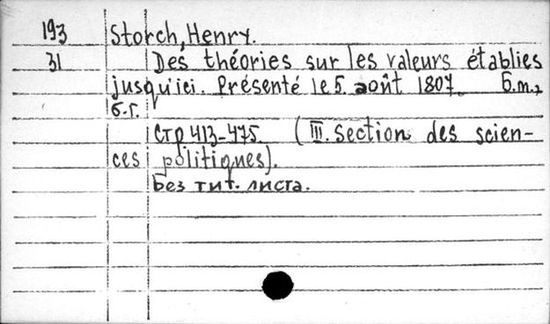 193 Storch, Henry.
31 Des théories sur les valeurs établies
jusqu'ici. Présenté le 5. août 1807. б.м.,
б.г.
Стр 413-475. (III. Section des scien-
ces politiques).
Без тит. листа.